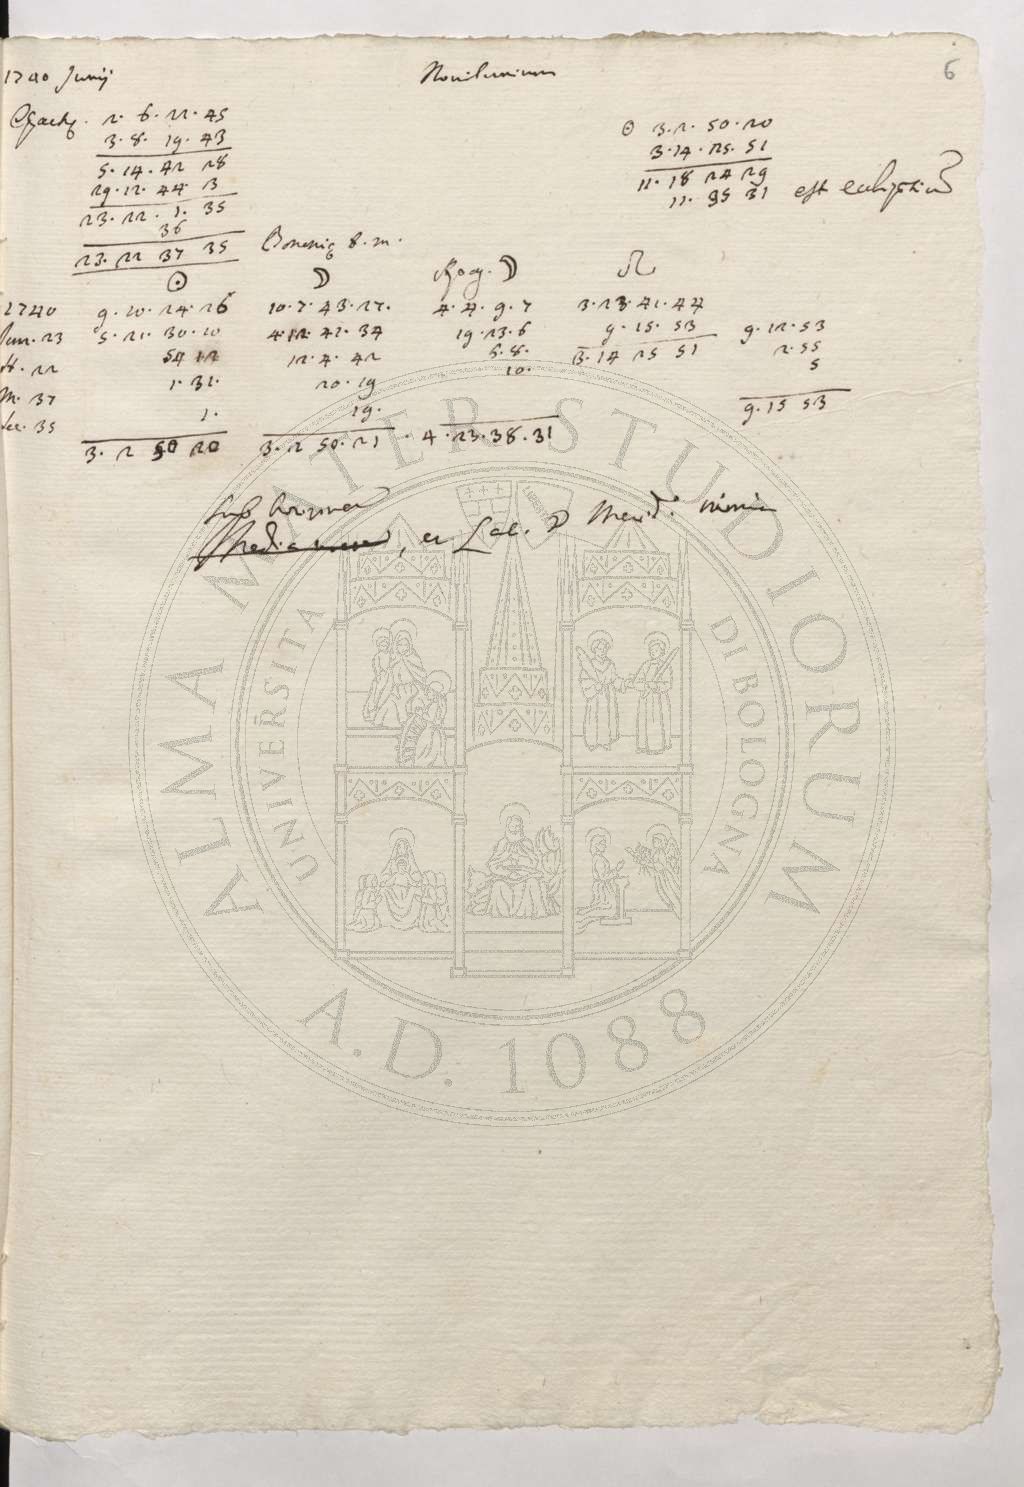 1740 Junij Novilunium 6
Epactæ. 2. 6. 22. 45
3. 8. 19. 43
5. 14. 42 28
29. 12. 44. 3
23. 22. 1. 35
36
23. 22 37 35 Bononiæ 8. m.
☉ 3. 2. 50. 20
3. 14. 25. 51
11. 18 24 29
11. 35 31 est ecliptica
☉ ☽ Apog. ☽ ☊
1740 9. 10. 24. 26 10. 7. 43. 27. 4. 4. 9. 7 3. 23. 41. 44
Jun. 23 5. 21. 30. 10 4. 12. 41. 34 19. 23. 6 9. 15. 53 9. 12. 53
H. 22 54 12 12. 4. 42 6. 8. 3. 14 25 51 2. 55
M. 37 1. 31. 20. 19 10. 5
sec. 35 1. 19. 9. 15 53
3. 2 50 20 3. 2 50. 21 . 4. 23. 38. 31
ALMA MATER STUDIORUM
UNIVERSITÀ DI BOLOGNA
A.D. 1088